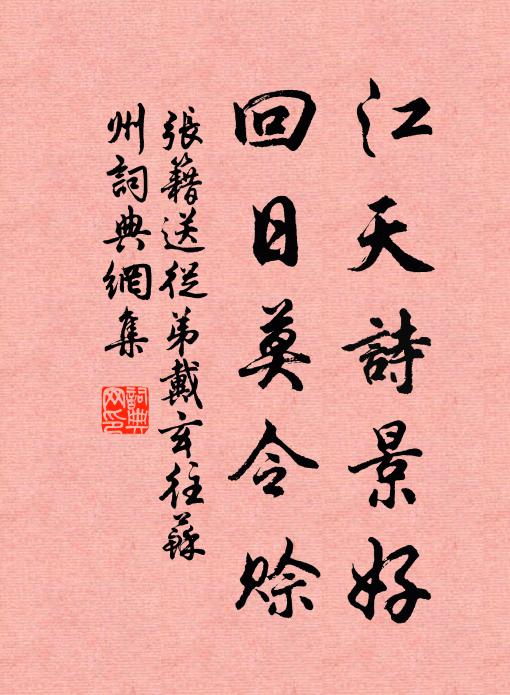 江天詩景好
回日莫令賒
張籍送從弟戴玄往蘇
州詞典網集
詞典
网印